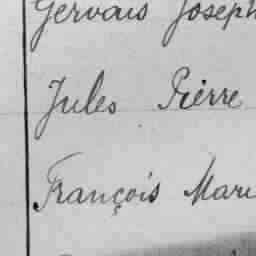 Gervais Joseph
Jules Pierre
François Mari